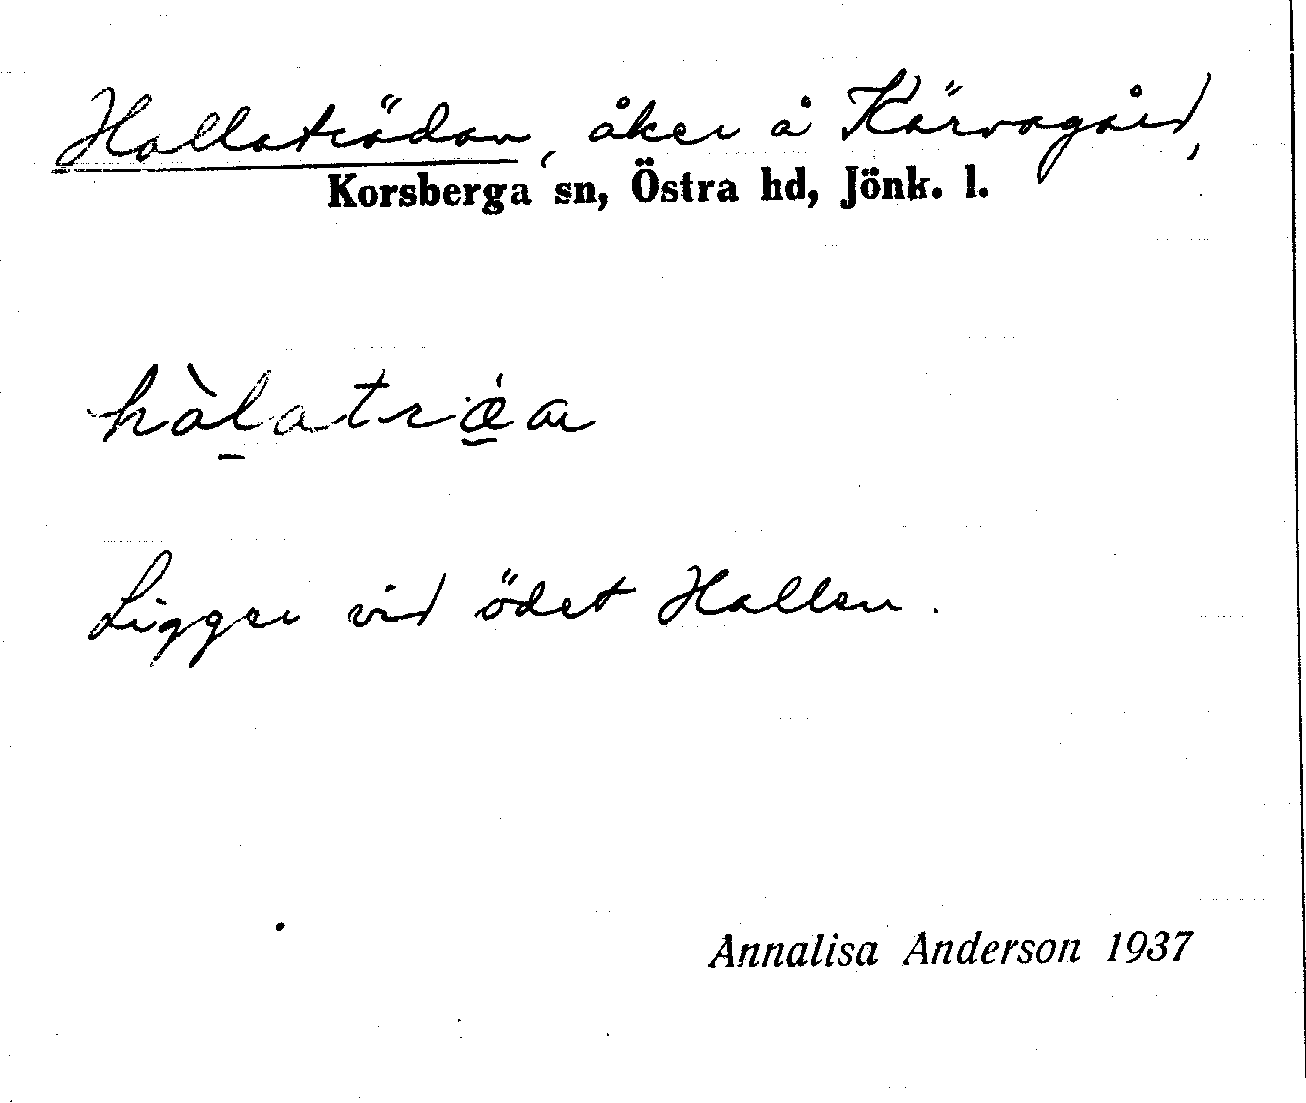 Hallaträdan, åker å Kärvagård,
Korsberga sn, Östra hd, Jönk. l.
hàl̠atrǿ̠ar
Ligger vid ödet Hallen.
Annalisa Anderson 1937